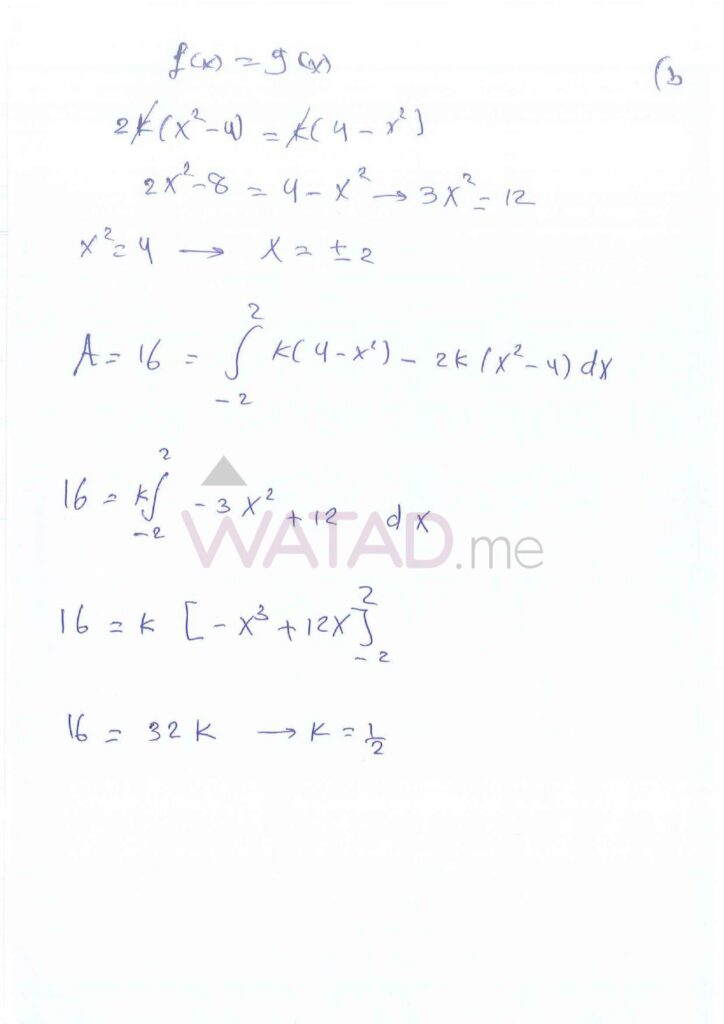 f(x) = g(x)
(b
2k(x²-4) = k(4-x²)
2x²-8 = 4-x² → 3x² = 12
x² = 4 → x = ±2
A = 16 = ∫₋₂² k(4-x²) - 2k(x²-4) dx
16 = k∫₋₂² -3x² + 12 dx
WATAD.me
16 = k [-x³ + 12x]₋₂²
16 = 32k → k = 1/2